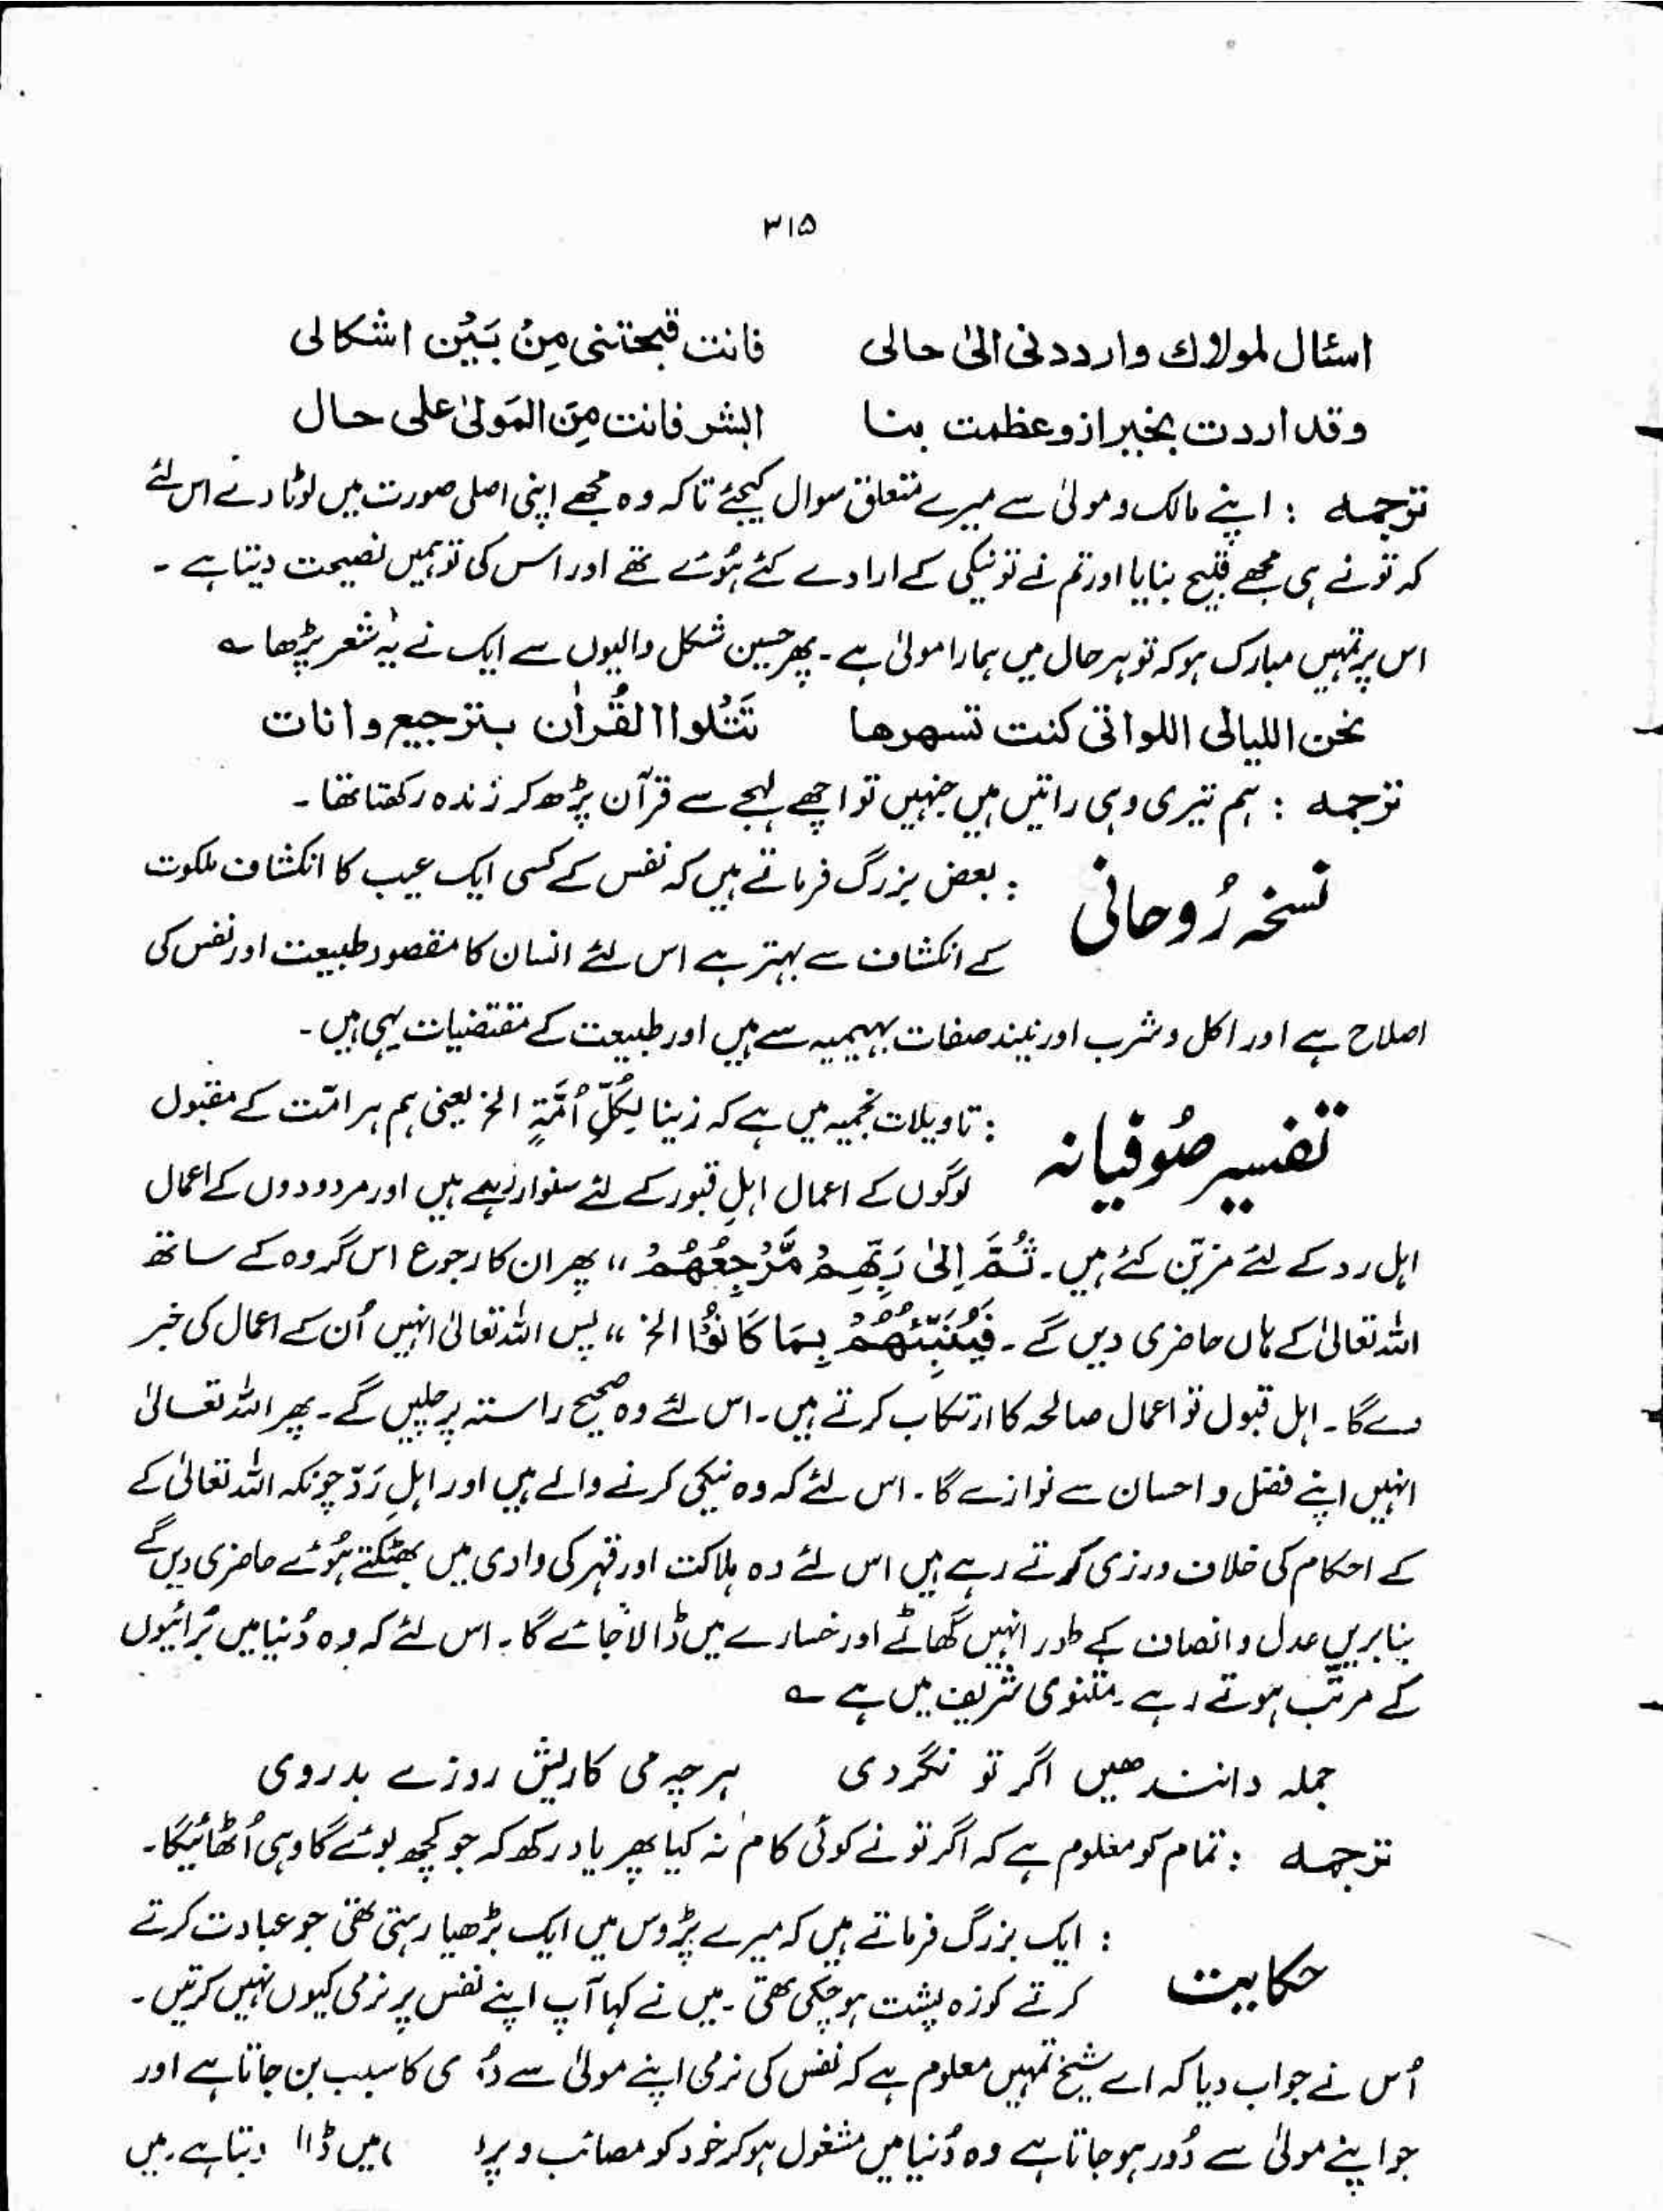 ۳۱۵
اسئال لمولاك وارددنی الیٰ حالی فانت قبحتنی مِنْ بَیْن اشکالی
وقد اردت بخیر از وعظمت بنا ابشر فانت مِنَ المَولیٰ علی حال
ترجمہ : اپنے مالک و مولیٰ سے میرے متعلق سوال کیجئے تاکہ وہ مجھے اپنی اصلی صورت میں لوٹا دے اس لئے
کہ تو نے ہی مجھے قبیح بنایا اور تم نے تو نیکی کے ارادے کئے ہُوئے تھے اور اس کی تو ہمیں نصیحت دیتا ہے ۔
اس پر تمہیں مبارک ہو کہ تو ہر حال میں ہمارا مولیٰ ہے ۔ پھر حسین شکل والیوں سے ایک نے یہ شعر پڑھا ؎
نحن اللیالی اللواتی کنت تسھرھا تَتْلوا القُراٰن بترجیع وانات
ترجمہ : ہم تیری وہی راتیں ہیں جنہیں تو اچھے لہجے سے قرآن پڑھ کر زندہ رکھتا تھا ۔
نسخہ رُوحانی : بعض بزرگ فرماتے ہیں کہ نفس کے کسی ایک عیب کا انکشاف ملکوت
کے انکشاف سے بہتر ہے اس لئے انسان کا مقصود طبیعت اور نفس کی
اصلاح ہے اور اکل و شرب اور نیند صفات بہیمیہ سے ہیں اور طبیعت کے مقتضیات یہی ہیں ۔
تفسیر صُوفیانہ : تاویلات نجمیہ میں ہے کہ زینا لِکُلِّ اُمَّۃٍ الخ یعنی ہم ہر امّت کے مقبول
لوگوں کے اعمال اہلِ قبور کے لئے سنوار رہے ہیں اور مردودوں کے اعمال
اہل رد کے لئے مزیّن کئے ہیں ۔ ثُمَّ اِلیٰ رَبِّھِمْ مَّرْجِعُھُمْ ،، پھر ان کا رجوع اس گروہ کے ساتھ
اللہ تعالیٰ کے ہاں حاضری دیں گے ۔ فَیُنَبِّئُھُمْ بِمَا کَانُوْا الخ ،، پس اللہ تعالیٰ انہیں اُن کے اعمال کی خبر
دے گا ۔ اہل قبول تو اعمال صالحہ کا ارتکاب کرتے ہیں ۔ اس لئے وہ صحیح راستہ پر چلیں گے ۔ پھر اللہ تعالیٰ
انہیں اپنے فضل و احسان سے نوازے گا ۔ اس لئے کہ وہ نیکی کرنے والے ہیں اور اہلِ رَدّ چونکہ اللہ تعالیٰ کے
کے احکام کی خلاف ورزی کرتے رہے ہیں اس لئے وہ ہلاکت اور قہر کی وادی میں بھٹکتے ہُوئے حاضری دیں گے
بنا بریں عدل و انصاف کے طور انہیں گھاٹے اور خسارے میں ڈالا جائے گا ۔ اس لئے کہ وہ دُنیا میں بُرائیوں
کے مرتب ہوتے رہے ۔ مثنوی شریف میں ہے ؎
جملہ دانند ھیں اگر تو نگردی ہر چہ می کاریش روزے بدروی
ترجمہ : تمام کو معلوم ہے کہ اگر تو نے کوئی کام نہ کیا پھر یاد رکھ کہ جو کچھ بوئے گا وہی اُٹھائیگا ۔
حکایت : ایک بزرگ فرماتے ہیں کہ میرے پڑوس میں ایک بڑھیا رہتی تھی جو عبادت کرتے
کرتے کوزہ پشت ہو چکی تھی ۔ میں نے کہا آپ اپنے نفس پر نرمی کیوں نہیں کرتیں ۔
اُس نے جواب دیا کہ اے شیخ تمہیں معلوم ہے کہ نفس کی نرمی اپنے مولیٰ سے دُ ی کا سبب بن جاتا ہے اور
جو اپنے مولیٰ سے دُور ہو جاتا ہے وہ دُنیا میں مشغول ہو کر خود کو مصائب و میں دیتا ہے ۔ میں